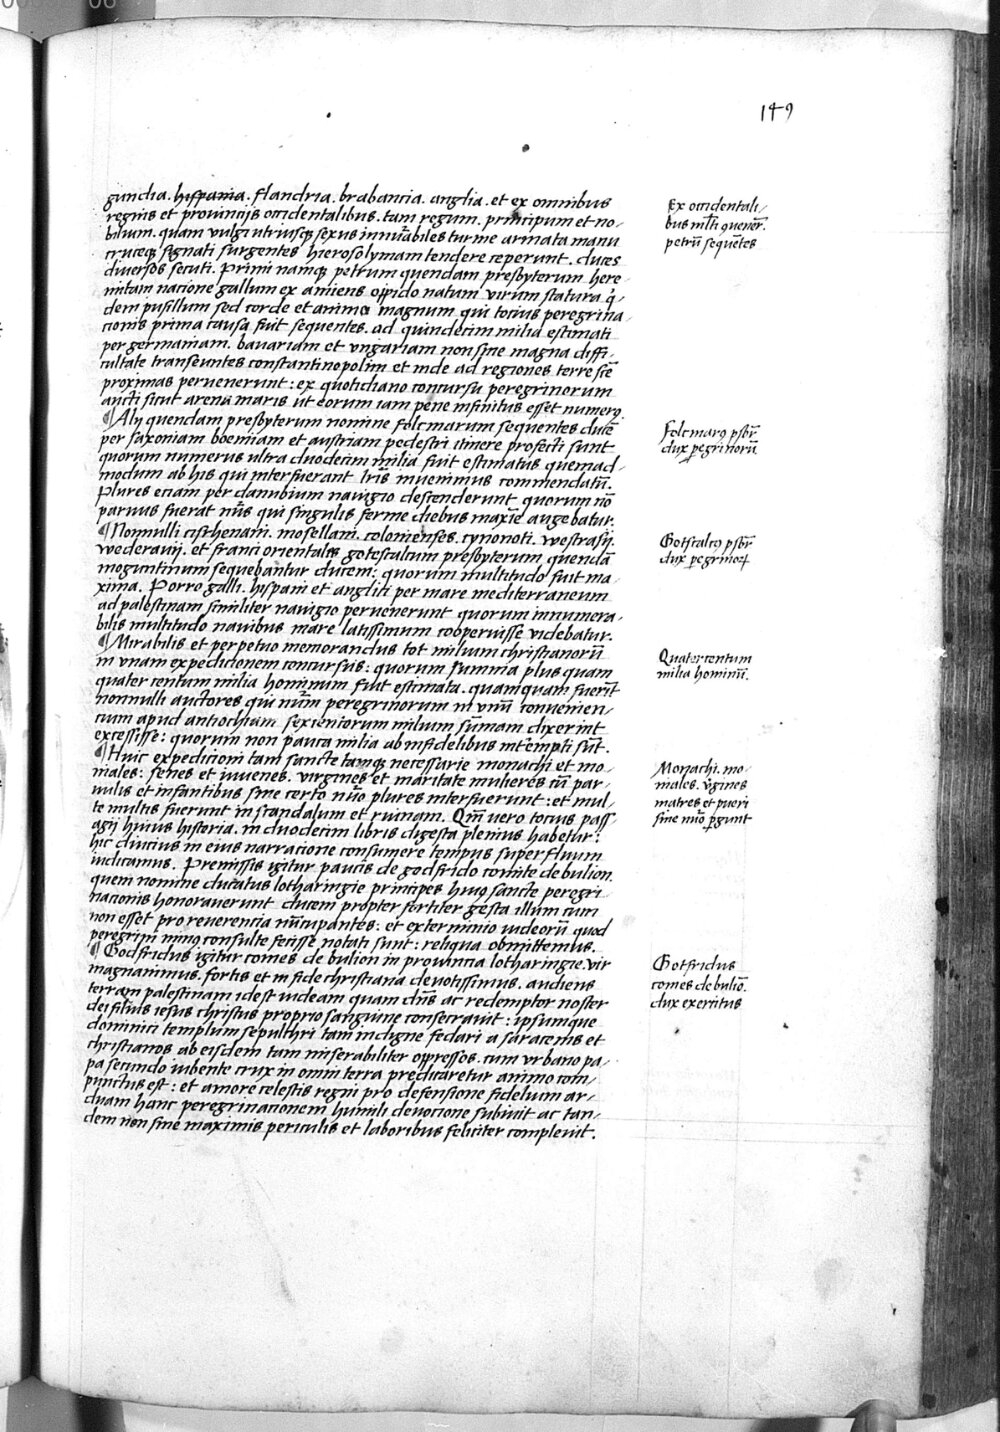 149
gundia. hispania. flandria. brabancia. anglia. et ex omnibus
regnis et provincijs occidentalibus. tam regum. principum et no-
bilium. quam vulgi utriusq; sexus innūabiles turme armata manu
cruceq; signati surgentes hierosolymam tendere ceperunt. duces
diversos secuti. Primi namq; petrum quendam presbyterum here-
mitam nacione gallum ex amiens oppido natum virum statura q̇-
dem pusillum sed corde et animo magnum qui tocius peregrina-
cionis prima causa fuit sequentes. ad quindecim milia estimati
per germaniam. bavariam et vngariam non sine magna diffi-
cultate transeuntes constantinopolim et inde ad regiones terre scē
proximas pervenerunt: ex quotidiano concursu peregrinorum
aucti sicut arena maris ut eorum iam pene infinitus esset numerꝯ.
¶ Alij quendam presbyterum nomine folcmarum sequentes ducē
per saxoniam boemiam et austriam pedestri itinere profecti sunt
quorum numerus ultra duodecim milia fuit estimatus quemad-
modum ab his qui interfuerant lr̄is invenimus commendatū.
Plures eciam per danubium navigio descenderunt quorum nō
parvus fuerat nūs qui singulis ferme diebus maxīe augebatur.
¶ Nonnulli cisrhenani. mosellani. colonienses. cynonoti. westrasij.
wederavij. et franci orientales gotescalcum presbyterum quendā
moguntinum sequebantur ducem: quorum multitudo fuit ma-
xima. Porro galli. hispani et anglici per mare mediterraneum
ad palestinam similiter navigio pervenerunt quorum innumera-
bilis multitudo navibus mare latissimum cooperuisse videbatur.
¶ Mirabilis et perpetuo memorandus tot milium christianorū
in vnam expedicionem concursus: quorum summa plus quam
quater centum milia hominum fuit estimata. quamquam fuerīt
nonnulli auctores qui nūm peregrinorum in vnū convenien-
cium apud antiochiam sexientorum milium sūmam dixerint
excessisse: quorum non pauca milia ab infidelibus īntempti sūt.
¶ Huic expedicioni tam sancte tamq; necessarie monachi et mo-
niales: senes et iuvenes. virgines et maritate mulieres cū par-
vulis et infantibus sine certo nūo plures interfuerunt: et mul-
te multis fuerunt in scandalum et ruinam. Qm̄ vero tocius pass-
agij huius historia. in duodecim libris digesta plenius habetur:
hic diucius in eius narracione consumere tempus superfluum
iudicamus. Premissis igitur paucis de godfrido comite de bulion.
quem nomine ducatus lotharingie principes huiꝯ sancte peregri-
nacionis honoraverunt ducem propter fortiter gesta illum cum
non esset pro reverencia nūcupantes: et exterminio iudeorū quod
peregrini minꝯ consulte fecisse notati sunt: reliqua obmittemus.
¶ Godfridus igitur comes de bulion in provincia lotharingie. vir
magnanimus. fortis et in fide christiana devotissimus. audiens
terram palestinam idest iudeam quam dn̄s ac redemptor noster
dei filius iesus christus proprio sanguine consecravit: ipsumque
dominici templum sepulchri tam indigne fedari a saracenis et
christianos ab eisdem tam miserabiliter oppressos. cum vrbano pa-
pa secundo iubente crux in omni terra predicaretur animo com-
punctus est: et amore celestis regni pro defensione fidelium ar-
duam hanc peregrinacionem humili devocione subivit ac tan-
dem non sine maximis periculis et laboribus feliciter complevit.
Ex occidentali-
bus mlti ꝯvener̄.
petrū sequētes
Folcmarꝯ psbr̄
dux p̱egrinorū
Gotscalcꝯ psbr̄
dux p̱egrinoꝝ
Quater centum
milia hominū.
Monachi. mo-
niales. v̄gines
matres et pueri
sine nūo p̱gunt
Gotfridus
comes de buliō.
dux exercitus